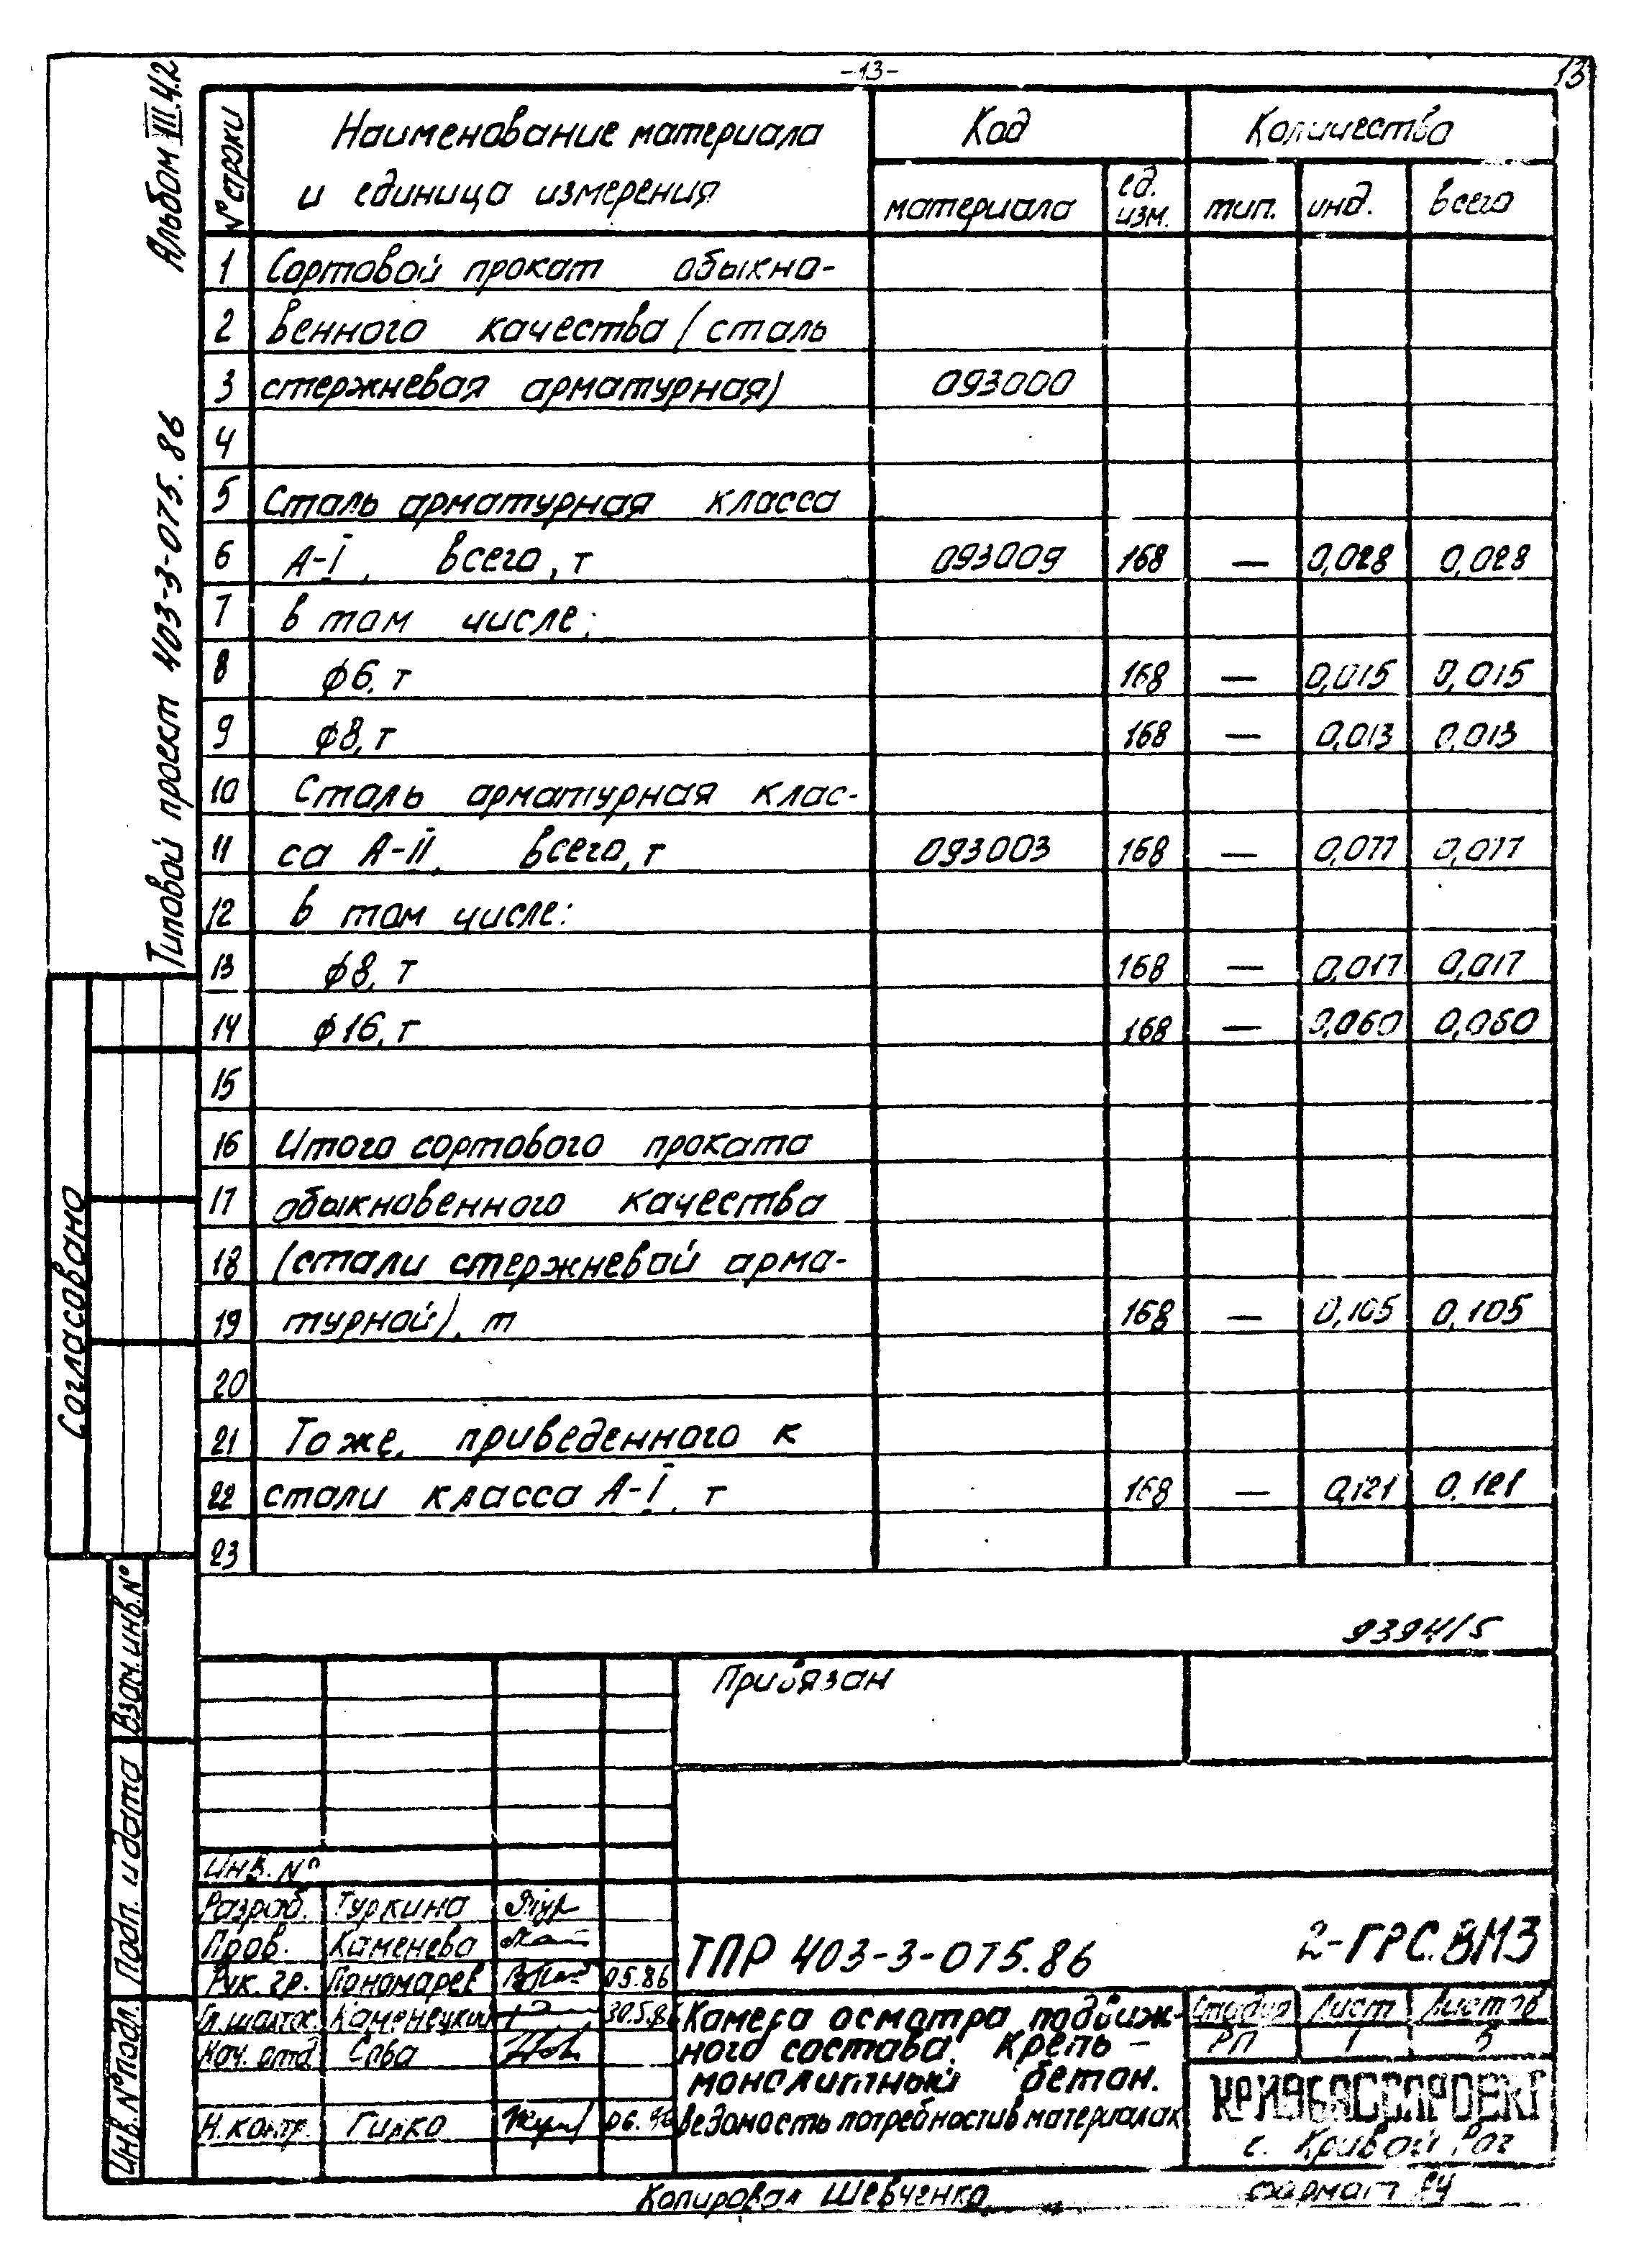 -13-
13
Альбом VIII.4.2
Типовой проект 403-3-075.86
Согласовано
Взам.инв.№
Подп. и дата
Инв.№подл.
№ строки Наименование материала и единица измерения Код Количества
материала ед. изм. тип. инд. всего
1 Сортовой прокат обыкно-
2 венного качества (сталь
3 стержневая арматурная) 093000
4
5 Сталь арматурная класса
6 А-I, всего, т 093009 168 — 0,028 0,028
7 в том числе:
8 ф6, т 168 — 0,015 0,015
9 ф8, т 168 — 0,013 0,013
10 Сталь арматурная клас-
11 са А-II, всего, т 093003 168 — 0,077 0,077
12 в том числе:
13 ф8, т 168 — 0,017 0,017
14 ф16, т 168 — 0,060 0,060
15
16 Итого сортового проката
17 обыкновенного качества
18 (стали стержневой арма-
19 турной), т 168 — 0,105 0,105
20
21 Тоже, приведенного к
22 стали класса А-I, т 168 — 0,121 0,121
23
9394/5
Привязан
Инв. №
Разраб. Туркина
Пров. Каменева
Рук. гр. Пономарев 05.86
Гл.шахтос. Каменецкий 30.5.86
Нач. отд Сова
Н.контр. Гилко 06.
ТПР 403-3-075.86 2-ГРС.ВМ3
Камера осмотра подвиж-
ного состава. Крепь -
монолитный бетон.
Ведомость потребности в материалах
Стадия Лист Листов
РП 1 5
КРИВБАССПРОЕКТ
г. Кривой Рог
Копировал Шевченко
формат А4